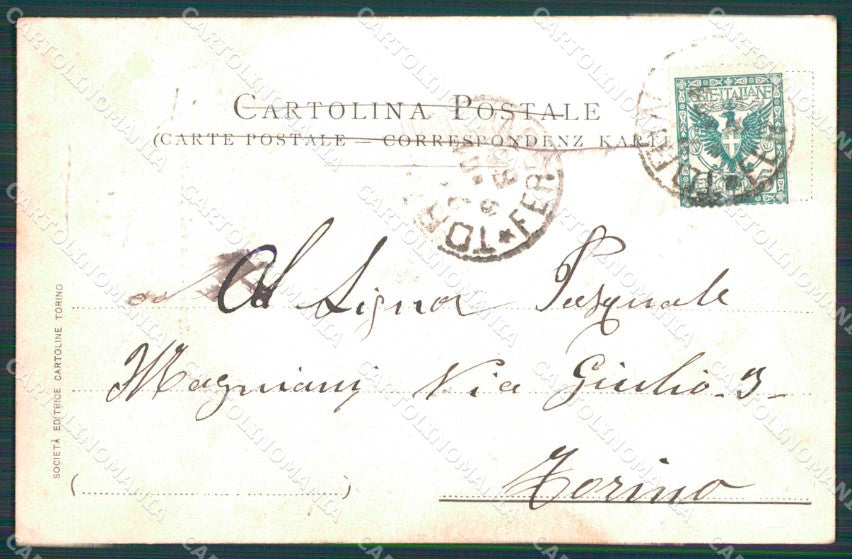 CARTOLINA POSTALE
(CARTE POSTALE — CORRESPONDENZ KART
POSTE ITALIANE
TOR
FER
Al Signor Pasquale
Magniani Via Giulio - 3 -
Torino
SOCIETÀ EDITRICE CARTOLINE TORINO
CARTOLINOMANIA